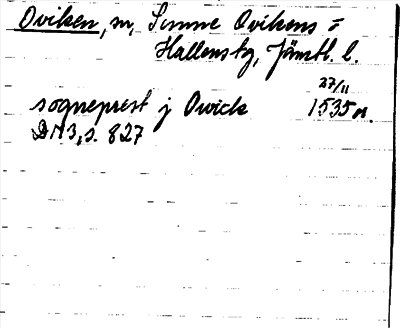 Oviken, sn, Sunne Ovikens =
Hallens tg, Jämtl. l.
27/11
sogneprest j Owick 1535 or.
DN 3, s. 827